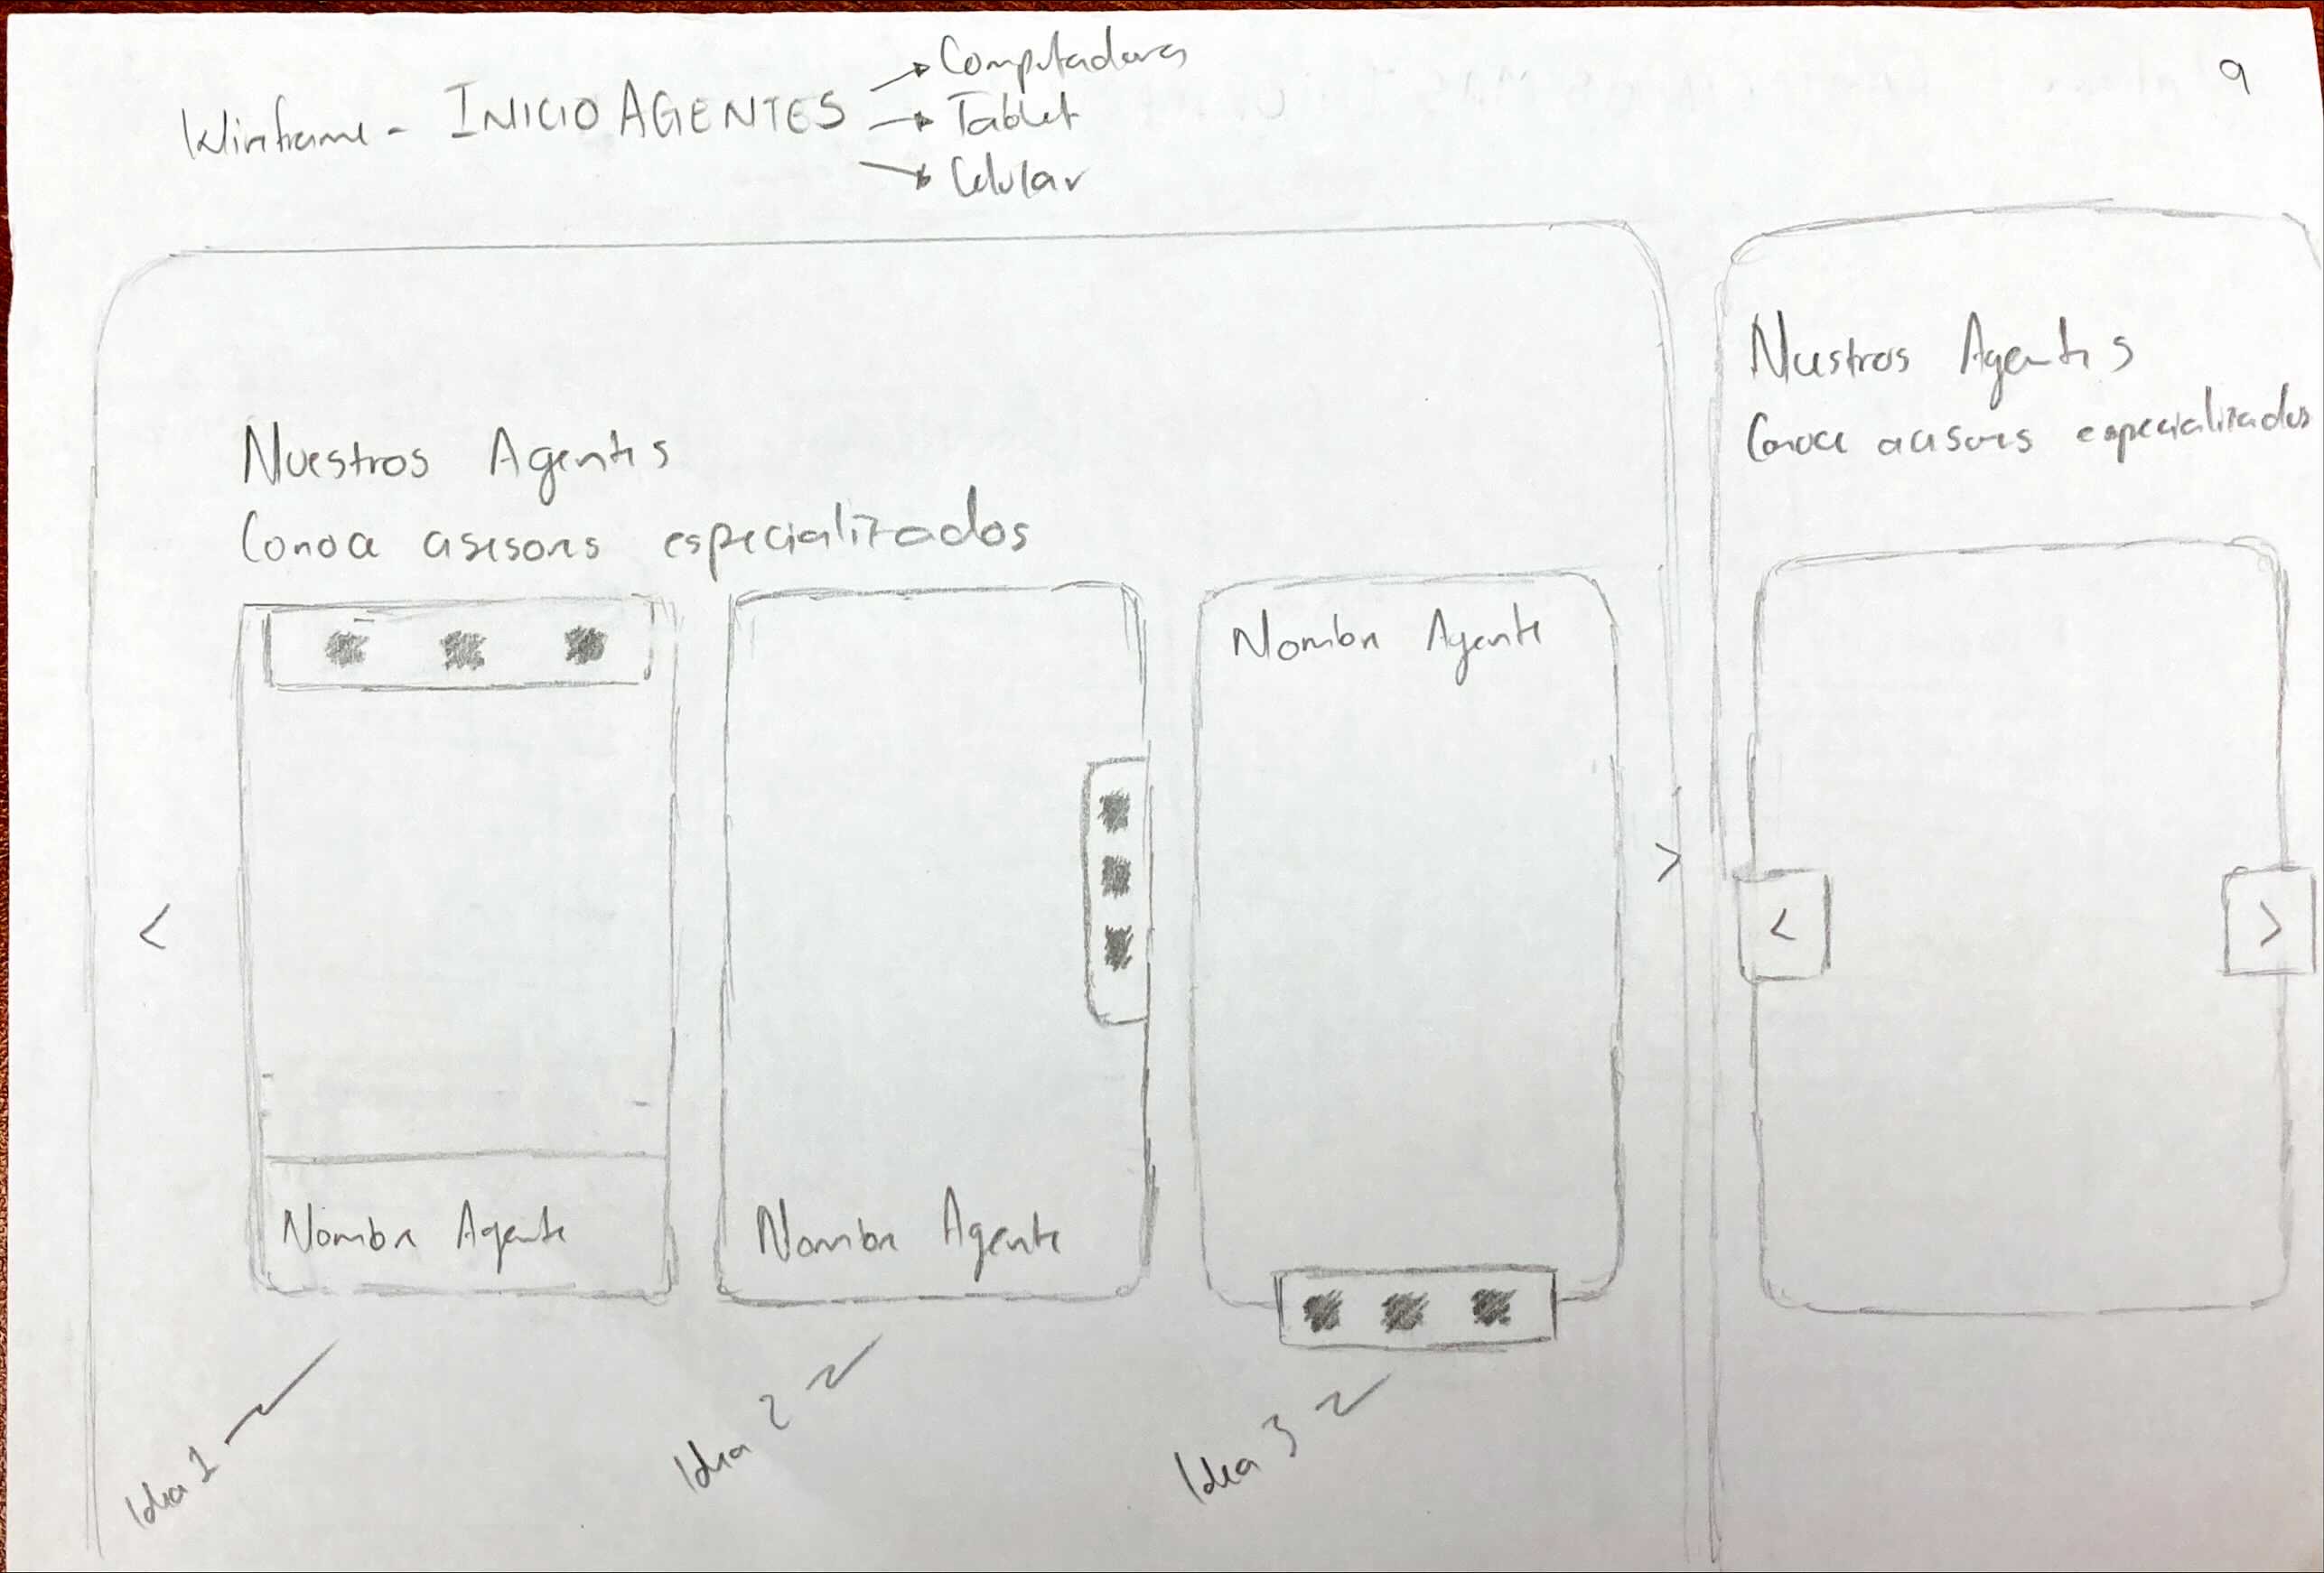 9
Wireframe - INICIO AGENTES
Computadora
Tablet
Celular
Nuestros Agentes
Conoce asesores especializados
Nombre Agente
Nombre Agente
Nombre Agente
<
>
Idea 1
Idea 2
Idea 3
Nuestros Agentes
Conoce asesores especializados
<
>